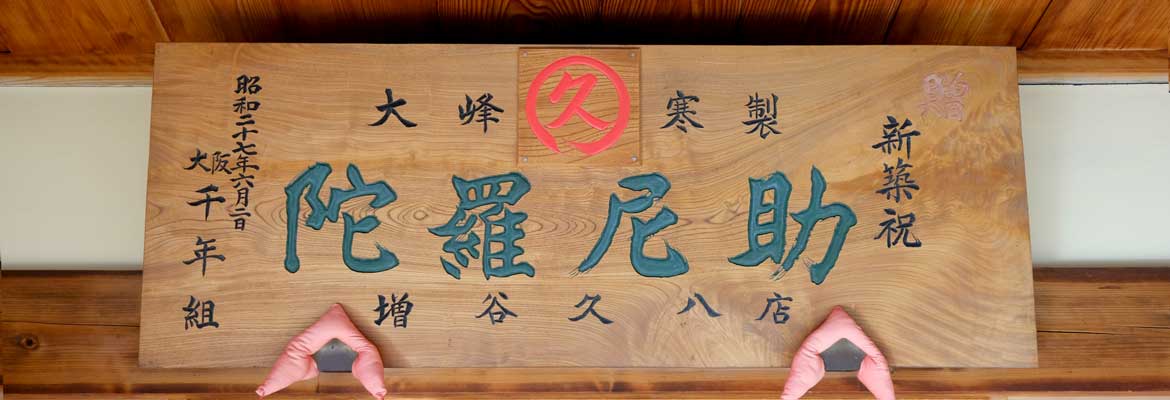 贈
新築祝
大峰 久 寒製
陀羅尼助
増谷久八店
昭和二十七年六月二日
大阪
千年組